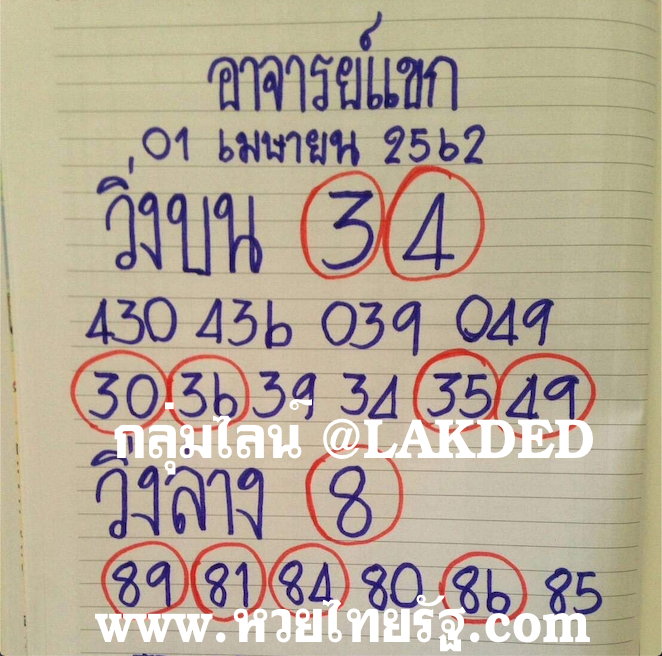 อาจารย์แขก
01 เมษายน 2562
วิ่งบน 3 4
430 436 039 049
30 36 39 34 35 49
กลุ่มไลน์ @LAKDED
วิ่งล่าง 8
89 81 84 80 86 85
www.หวยไทยรัฐ.com